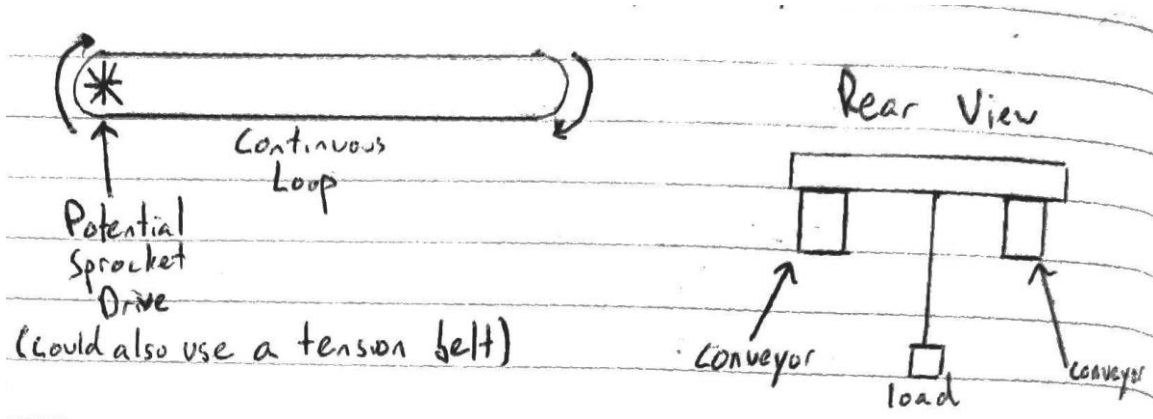 Continuous
Loop
Potential
Sprocket
Drive
(could also use a tension belt)
Rear View
Conveyor
load
conveyor